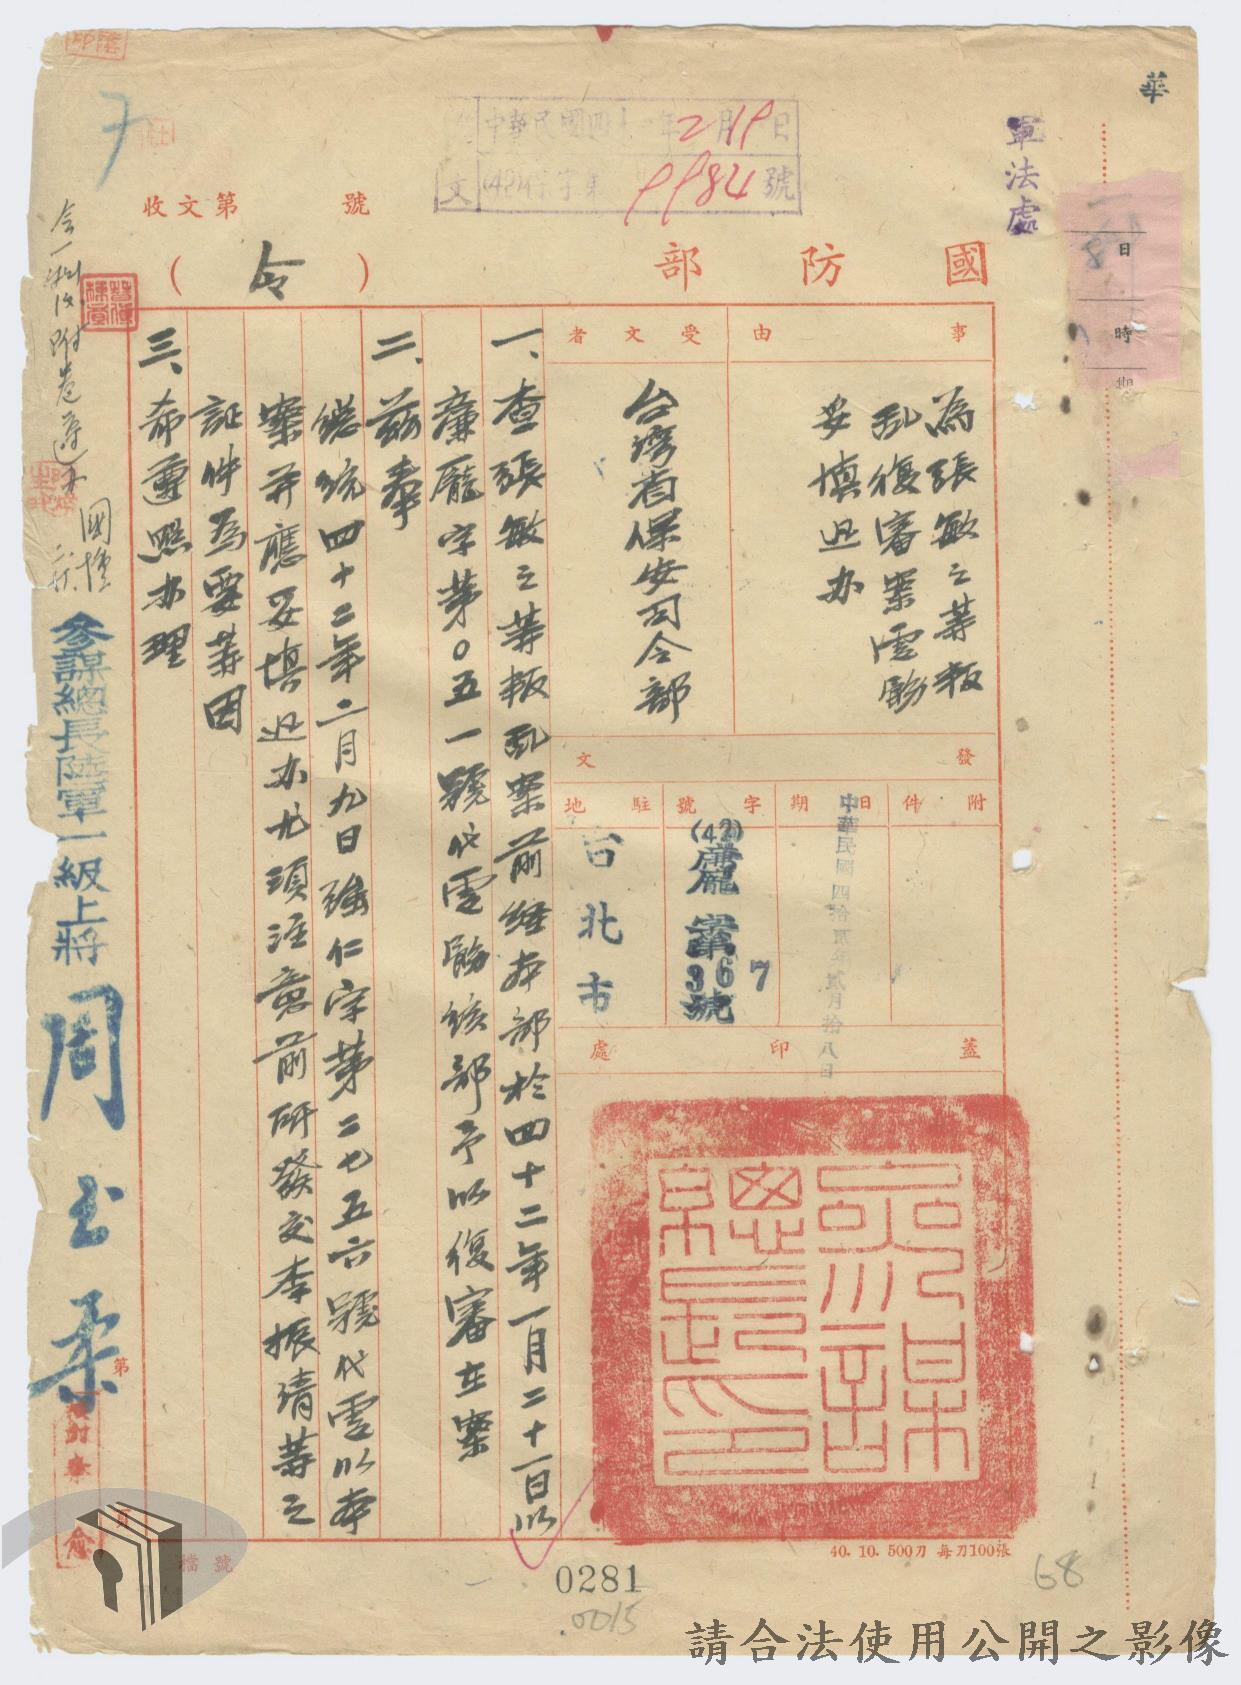 華
軍法處
日
時
中華民國四十二年2月19日
文
(42)保字第9984號
收文第 號
國防部
(令)
事由
為張敏之等叛
亂復審案電飭
妥慎迅办
受文者
台灣省保安司令部
發文
附件
日期
中華民國四拾貳年貳月拾八日
字號
(42)
廉龐字第
367
號
駐地
台北市
蓋印處
參謀總長印
一、查張敏之等叛亂案前經本部於四十二年一月二十一日以
廉龐字第0五一號代電飭該部予以復審在案
二、茲奉
總統四十二年二月九日強仁字第二七五六號代電以本
案并應妥慎迅办尤須注意前所發交李振清等之
証件為要等因
三、希遵照办理
參謀總長陸軍一級上將周至柔
第
頁
檔號
40. 10. 500刀 每刀100張
0281
0015
68
請合法使用公開之影像